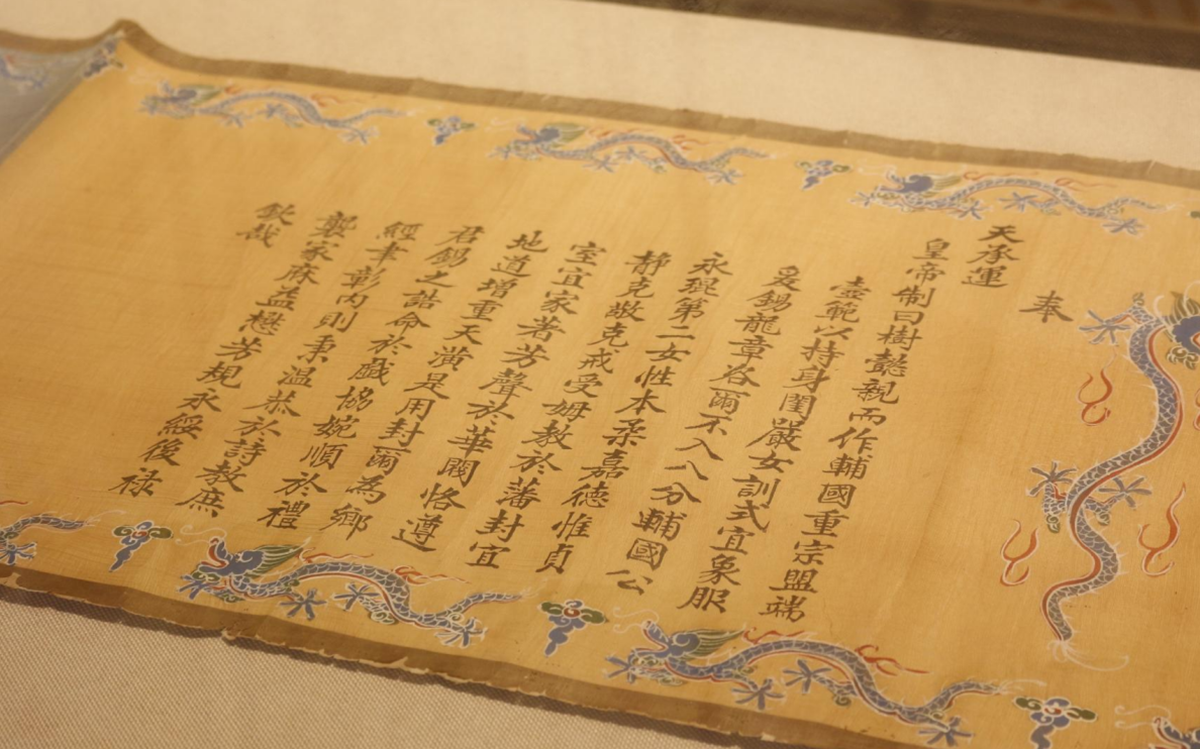 奉
天承運
皇帝制曰樹懿親而作輔國重宗盟端
壼範以持身閨嚴女訓式宜象服
爰錫龍章咨爾不入八分輔國公
永第二女性本柔嘉德惟貞
静克敬克戒受姆教於藩封宜
室宜家著芳聲於華閥恪遵
地道增重天潢是用封爾為鄉
君錫之誥命於戲協婉順於禮
經聿彰内則秉温恭於詩教庶
襲家庥益懋芳規永綏後祿
欽哉